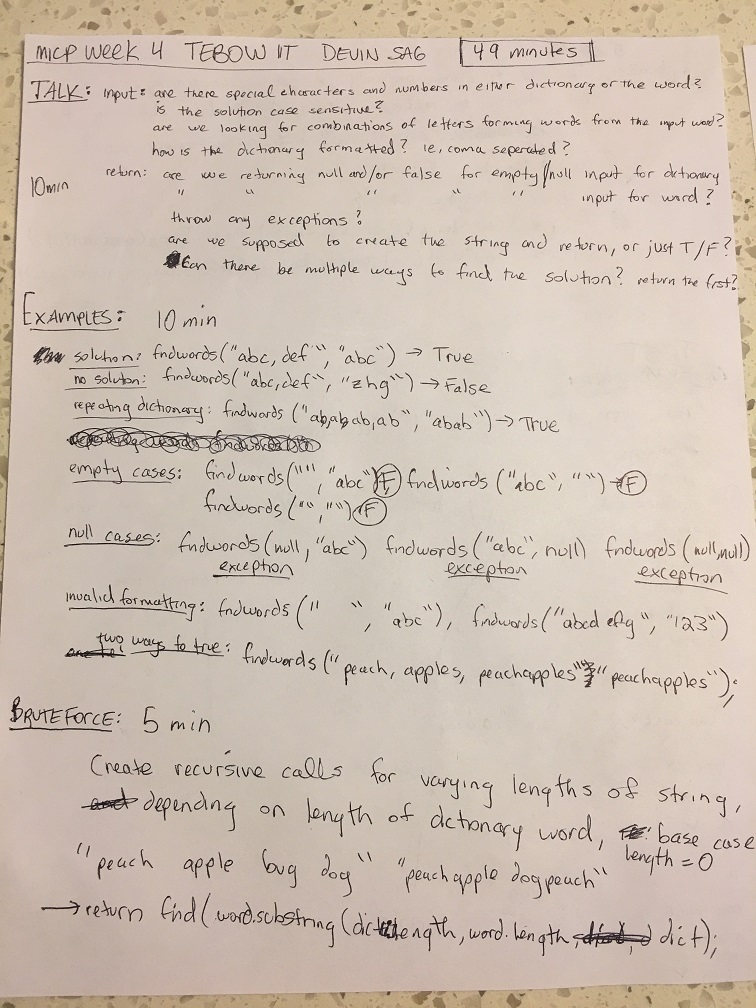 MICP WEEK 4 TEBOW IIT DEVIN SAG 49 minutes
TALK: input: are there special characters and numbers in either dictionary or the word?
is the solution case sensitive?
are we looking for combinations of letters forming words from the input word?
how is the dictionary formatted? ie, coma seperated?
10min return: are we returning null and/or false for empty/null input for dictionary
" " " " " input for word?
throw any exceptions?
are we supposed to create the string and return, or just T/F?
can there be multiple ways to find the solution? return the first?
EXAMPLES: 10 min
solution: findwords("abc, def", "abc") → True
no solution: findwords("abc,def", "zhg") → False
repeating dictionary: findwords ("ab,ab,ab,ab", "abab") → True
empty cases: findwords("", "abc") F findwords ("abc", "") → F
findwords ("", "") F
null cases: findwords(null, "abc") findwords ("abc", null) findwords (null,null)
exception exception exception
invalid formatting: findwords (" ", "abc"), findwords("abcd efg", "123")
two ways to true: findwords ("peach, apples, peachapples", "peachapples");
BRUTEFORCE: 5 min
Create recursive calls for varying lengths of string,
depending on length of dictionary word, base case
length = 0
"peach apple bug dog" "peachappledogpeach"
→ return find(word.substring(dict.length, word.length, dict);